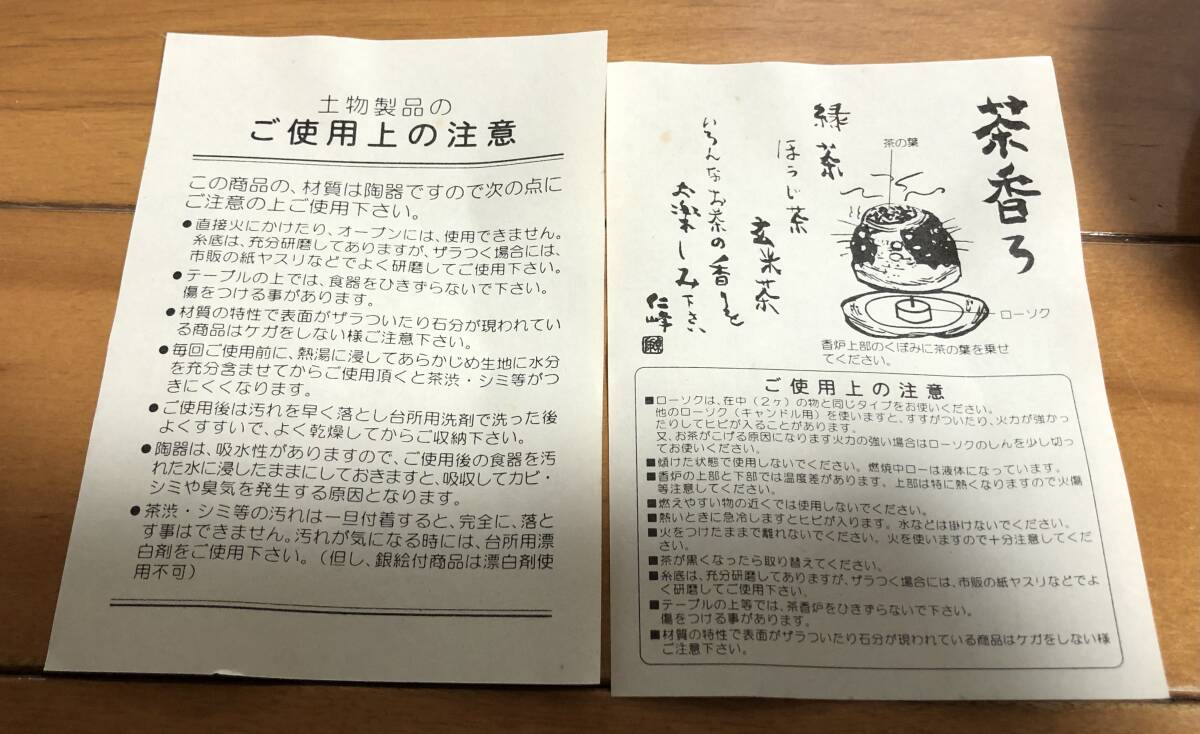 土物製品の
ご使用上の注意
この商品の、材質は陶器ですので次の点に
ご注意の上ご使用下さい。
●直接火にかけたり、オーブンには、使用できません。
糸底は、充分研磨してありますが、ザラつく場合には、
市販の紙ヤスリなどでよく研磨してご使用下さい。
●テーブルの上では、食器をひきずらないで下さい。
傷をつける事があります。
●材質の特性で表面がザラついたり石分が現われてい
る商品はケガをしない様ご注意下さい。
●毎回ご使用前に、熱湯に浸してあらかじめ生地に水分
を充分含ませてからご使用頂くと茶渋・シミ等がつ
きにくくなります。
●ご使用後は汚れを早く落とし台所用洗剤で洗った後
よくすすいで、よく乾燥してからご収納下さい。
●陶器は、吸水性がありますので、ご使用後の食器を汚
れた水に浸したままにしておきますと、吸収してカビ・
シミや臭気を発生する原因となります。
●茶渋・シミ等の汚れは一旦付着すると、完全に、落と
す事はできません。汚れが気になる時には、台所用漂
白剤をご使用下さい。(但し、銀絵付商品は漂白剤使
用不可)
茶香ろ
緑茶
ほうじ茶
玄米茶
いろんなお茶の香りを
お楽しみ下さい
仁峰
茶の葉
ローソク
香炉上部のくぼみに茶の葉を乗せ
てください。
ご使用上の注意
■ローソクは、在中(2ヶ)の物と同じタイプをお使いください。
他のローソク(キャンドル用)を使いますと、すすがついたり、火力が強かっ
たりしてヒビが入ることがあります。
又、お茶がこげる原因になります火力の強い場合はローソクのしんを少し切っ
てお使いください。
■傾けた状態で使用しないでください。燃焼中ローは液体になっています。
■香炉の上部と下部では温度差があります。上部は特に熱くなりますので火傷
等注意してください。
■燃えやすい物の近くでは使用しないでください。
■熱いときに急冷しますとヒビが入ります。水などは掛けないでください。
■火をつけたままで離れないでください。火を使いますので十分注意してくだ
さい。
■茶が黒くなったら取り替えてください。
■糸底は、充分研磨してありますが、ザラつく場合には、市販の紙ヤスリなどでよ
く研磨してご使用下さい。
■テーブルの上等では、茶香炉をひきずらないで下さい。
傷をつける事があります。
■材質の特性で表面がザラついたり石分が現われている商品はケガをしない様
ご注意下さい。